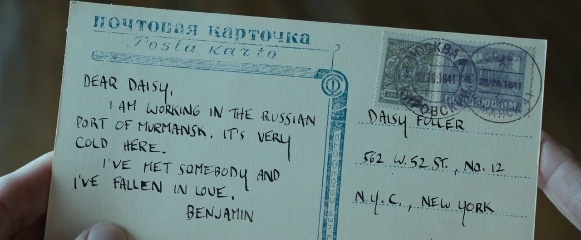 почтовая карточка
Posta karto
DEAR DAISY,
I AM WORKING IN THE RUSSIAN
PORT OF MURMANSK. IT'S VERY
COLD HERE.
I'VE MET SOMEBODY AND
I'VE FALLEN IN LOVE.
BENJAMIN
МОСКВА
DAISY FULLER
562 W. 52 ST., NO. 12
N.Y.C., NEW YORK